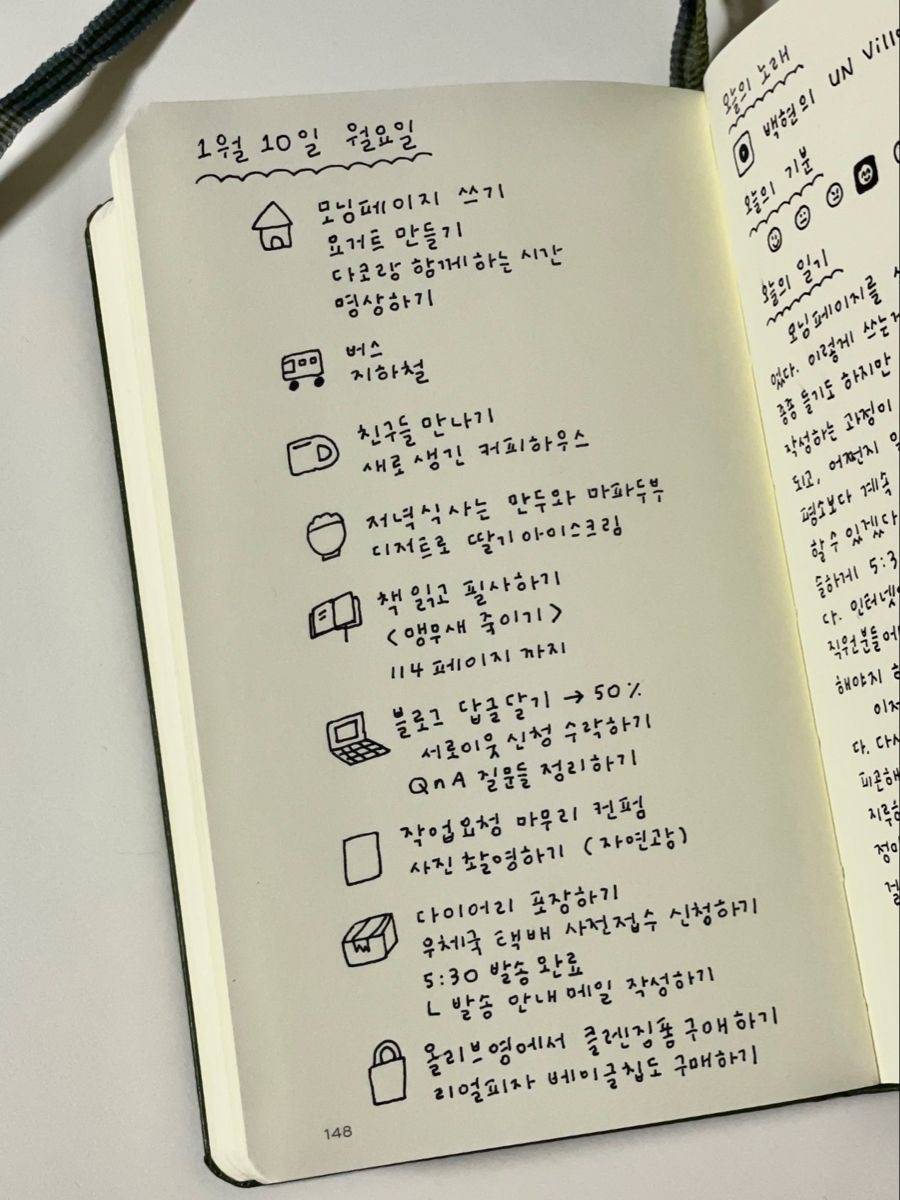 1월 10일 월요일
모닝페이지 쓰기
요거트 만들기
다코랑 함께하는 시간
명상하기
버스
지하철
친구들 만나기
새로 생긴 커피하우스
저녁식사는 만두와 마파두부
디저트로 딸기아이스크림
책 읽고 필사하기
<앵무새 죽이기>
114 페이지 까지
블로그 답글달기 → 50%
서로이웃 신청 수락하기
QnA 질문들 정리하기
작업요청 마무리 컨펌
사진 촬영하기 (자연광)
다이어리 포장하기
우체국 택배 사전접수 신청하기
5:30 발송 완료
ㄴ 발송 안내 메일 작성하기
올리브영에서 클렌징폼 구매하기
리얼피자 베이글칩도 구매하기
148
오늘의 노래
백현의 UN Villa
오늘의 기분
오늘의 일기
모닝페이지를
었다. 이렇게 쓰는게
종종 들기도 하지만
작성하는 과정이
되고, 어쩐지
평소보다 계속
할 수 있겠다
늘하게 5:3
다. 인터넷
직원분들에
해야지
이제
다. 다시
피곤해
지루하